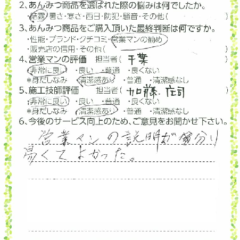 2、あんみつ商品を選ばれた際の悩みは何でしたか。
寒さ・暑さ・西日・防犯・騒音・その他(　)
3、あんみつ商品をご購入頂いた最終判断は何ですか。
・性能・ブランド・クチコミ・営業マンの勧め
・販売店の信用・その他(　)
4、営業マンの評価　担当者(千葉　)
・非常に良い・良い・普通・良くない
*身だしなみ 清潔感あり・普通・清潔感なし
5、施工技師評価　担当者(加藤、庄司　)
・非常に良い・良い・普通・良くない
*身だしなみ 清潔感あり・普通・清潔感なし
6、今後のサービス向上のため、ご意見をお聞かせ下さい。
営業マンの説明が分り
易くてよかった。